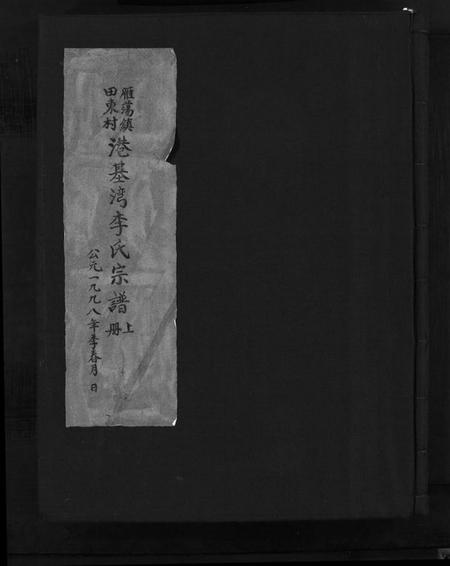 雁蕩鎮
田東村
港基湾李氏宗譜
上
册
公元一九九八年季春月 日